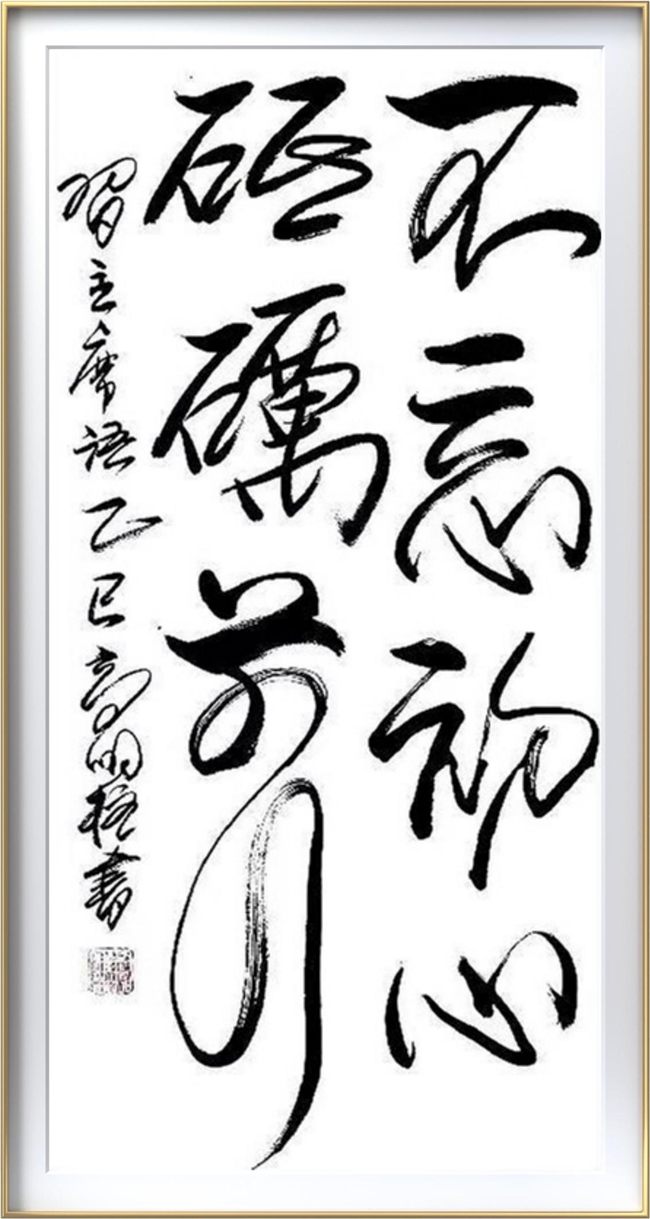 不忘初心
砥砺前行
习主席语 乙巳 高明 书